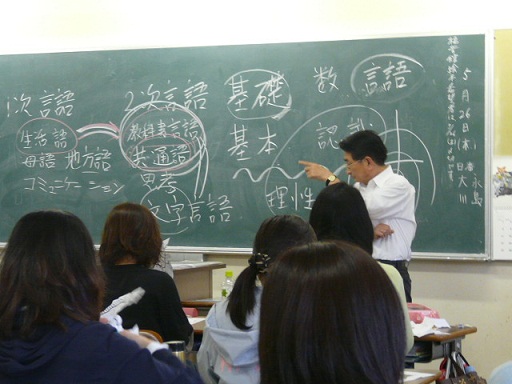 1次言語
生活語
母語 地方語
コミュニケーション
2次言語
教科書言語
共通語
思考
文字言語
基礎
基本
数
言語
認識
理性
5月26日(木)
日直
永島
大川